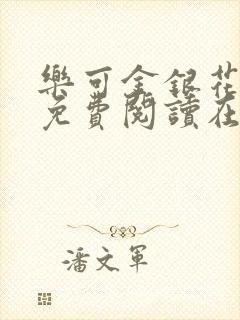 樂可金銀花
免費閱讀在
潘文軍